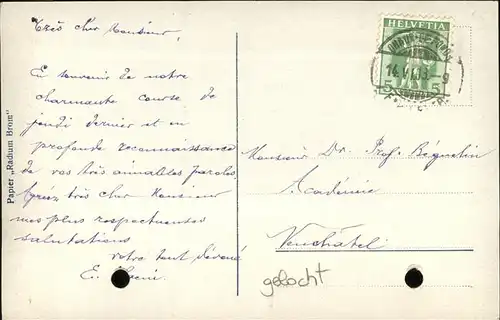 Très cher Monsieur,
En souvenir de notre
charmante course de
jeudi dernier et en
profonde reconnaissance
de vos très aimables paroles,
Agréez très cher Monsieur
mes plus respectueuses
salutations
votre tout dévoué
E.
Papier „Radium Brom"
HELVETIA
5 5
Monsieur Dr. Prof. Béguelin
Académie
Neuchâtel
gelocht